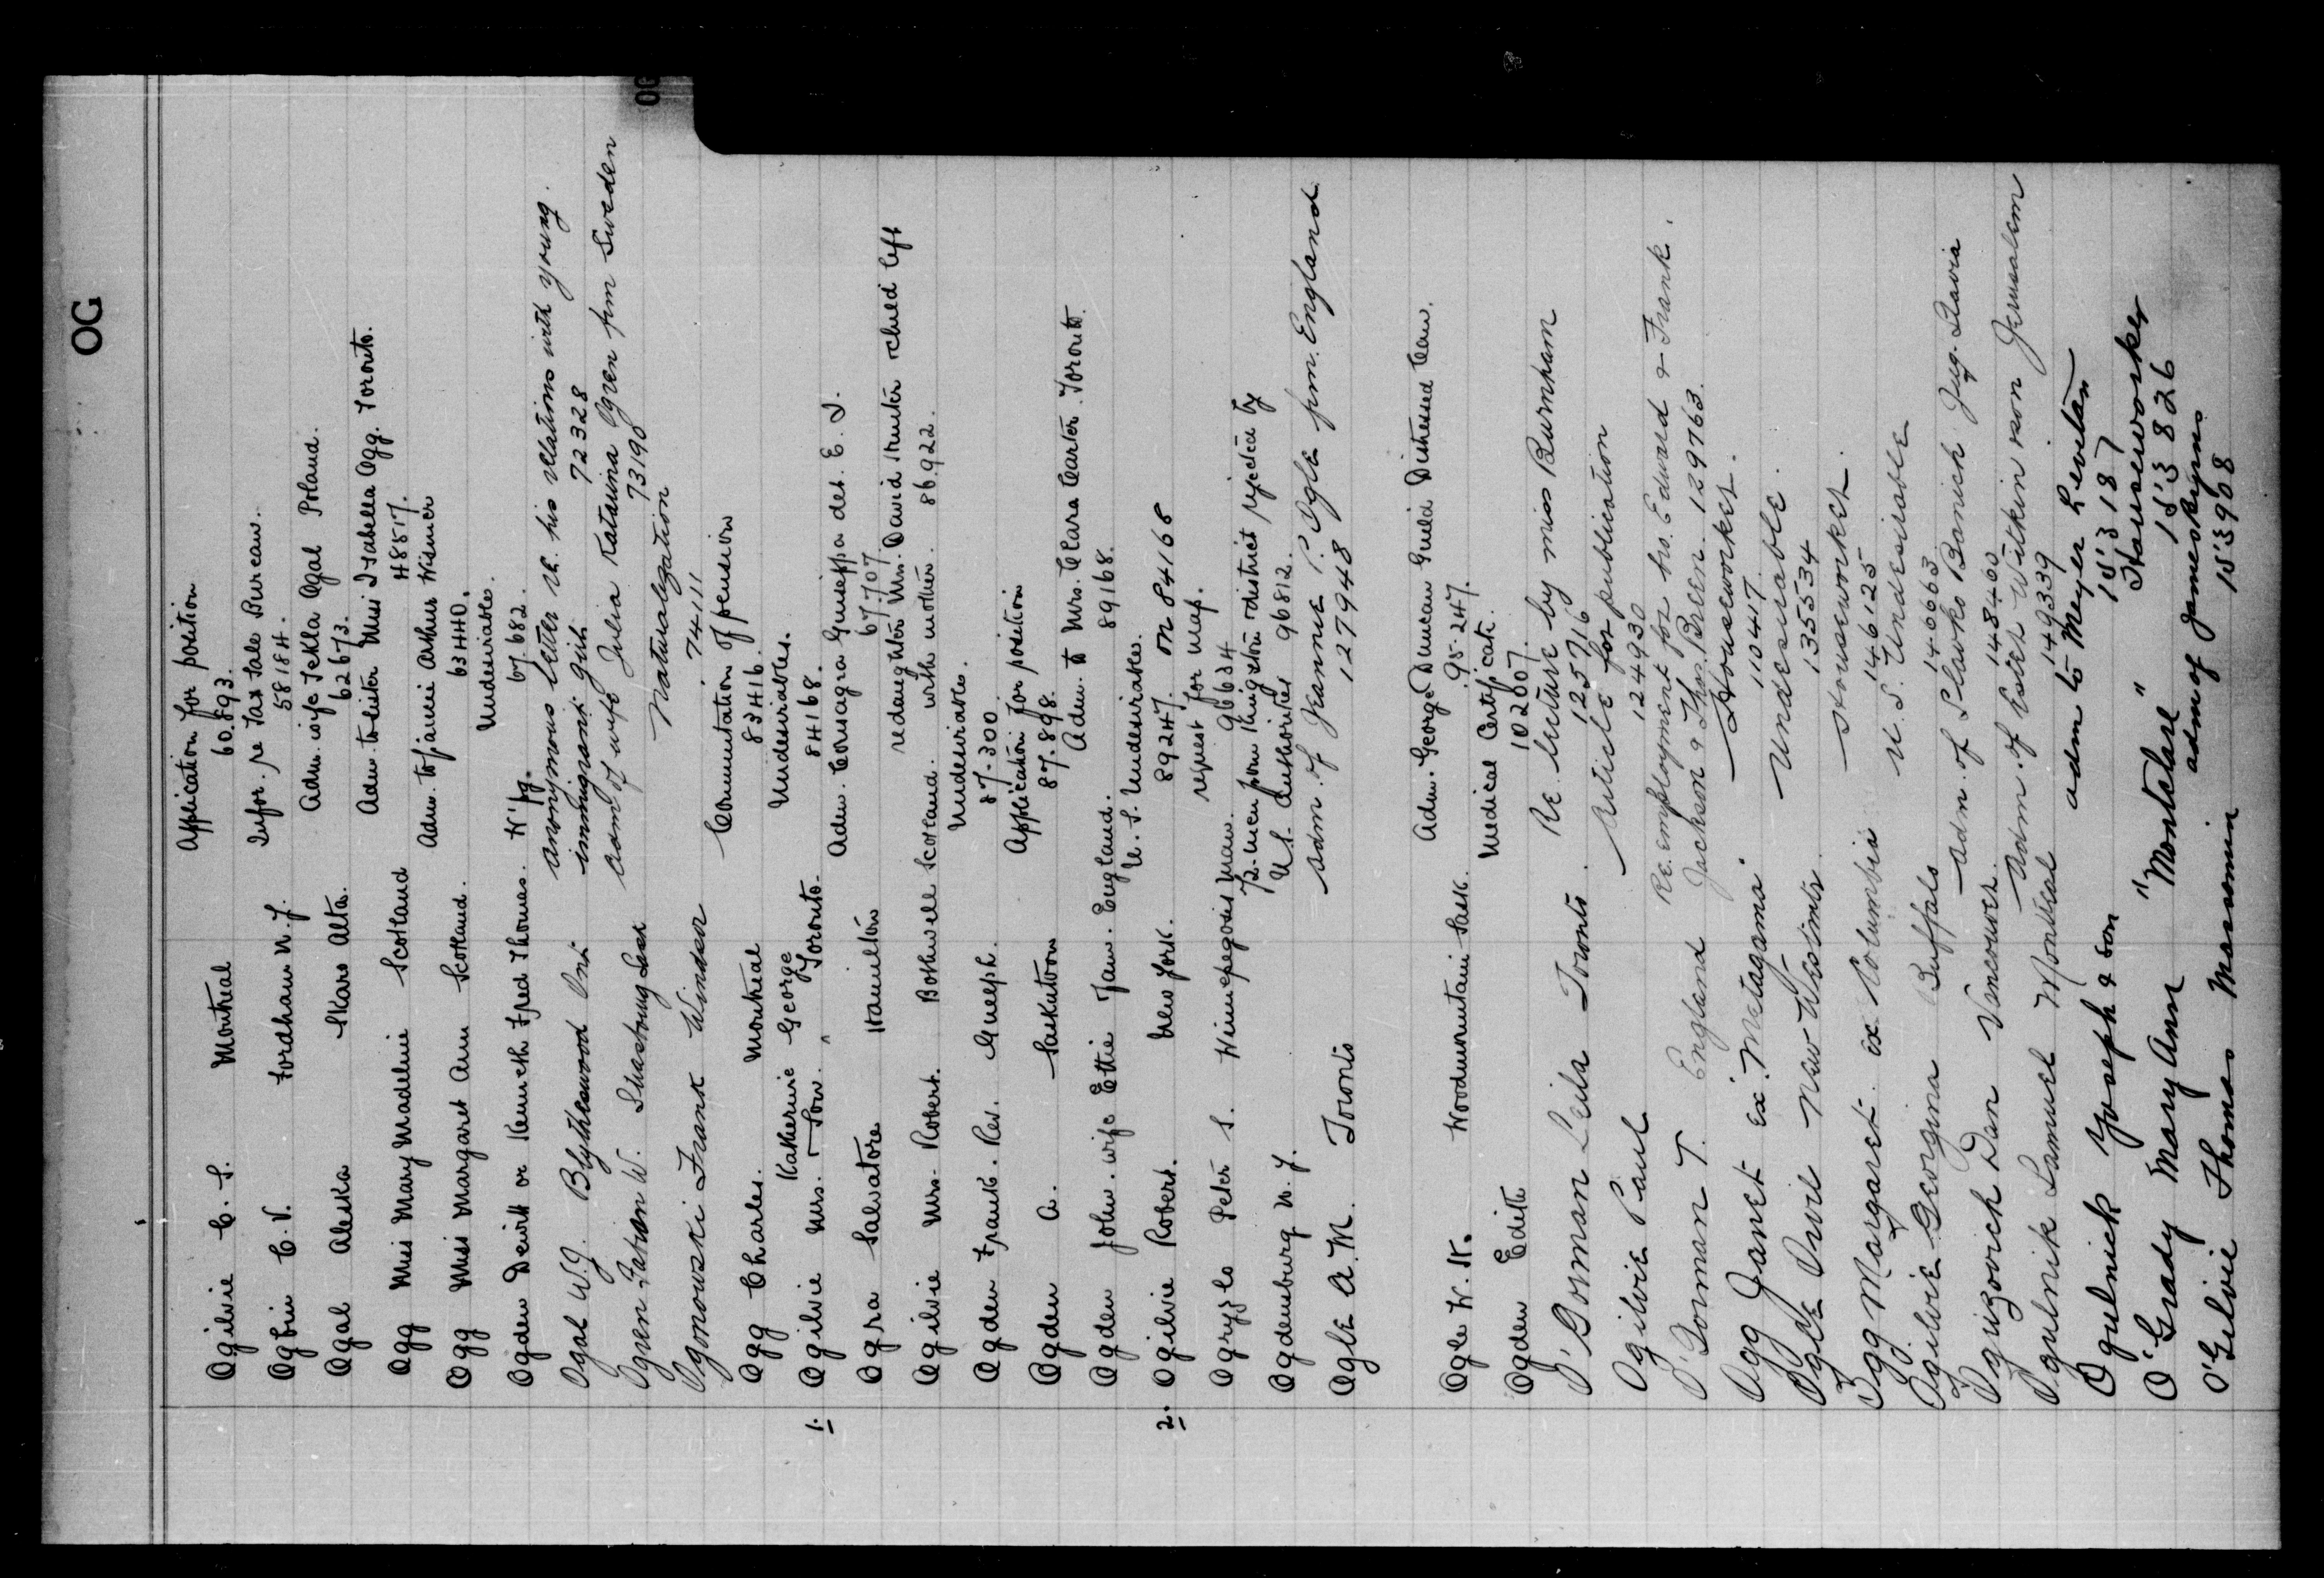 OG
OG
Application for position
Ogilvie C. S. Montreal 60.893.
Infor. re Tax Sale Bureau.
C. V. Fordham N.J. 58184.
Adm. wife Tekla Ogal Poland.
Ogal Aleska Skaro Alta. 62673.
Adm. to sister Miss Isabella Ogg. Toronto.
Ogg Miss Mary Madeline Scotland 48517.
Adm. to fiance Arthur Wismer
Ogg Miss Margaret Ann Scotland. 63440.
Undesirables.
Ogden Dewitt or Kenneth Fred Thomas. W'pg. 67.682.
anonymous letter re. his relations with young
Ogal W.J. Blytheswood Ont immigrant girls 72328
adm of wife Julia Katarina Ogren frm Sweden
Ogren Fabian W. Shaunavon Sask 73190
Naturalization
Ogonowski Frank Windsor 74111
Commutation of pension
Ogg Charles. Montreal 83416.
Katherine George Undesirables.
1. Ogilvie Mrs. & Son. Toronto. 84168.
Adm. Consagra Guiseppa det. E. I.
Ogra Salvatore Hamilton 67.707
re daughter Mrs. David Hunter & child left
Ogilvie Mrs. Robert. Bothwell Scotland. with mother. 86.922.
Undesirables.
Ogden Frank. Rev. Guelph. 87.300
Application for position
Ogden A. Saskatoon 87.898.
Adm. to Mrs. Clara Carter. Toronto.
Ogden John. wife Ettie Jam. England. 89168.
U. S. Undesirables.
2. Ogilvie Robert. New York. 89247. on 84168
request for map.
Ogryzlo Peter S. Winnipegosis Man. 96634
72 men from Kingston district rejected by
Ogdensburg N. Y. U.S. Authorities 96812.
adm. of Jeannie P. Ogle frm. England
Ogle A. M. Toronto 127948
Adm. George Duncan Guild Distressed Cam.
Ogle W. K. Woodmountain Sask. 95.247.
Medical Certificate.
Ogden Edith 10 2007.
Re. lecture by miss Burnham
O'Gorman Leila Toronto 125716
Article for publication
Ogilvie Paul 124930
Re. employment for bro. Edward & Frank.
O'Gorman T. England Jackson & Thos. Breen. 129763.
Houseworker.
Ogg Janet ex "Metagama" 110417
Undesirable.
Ogle Orvil New Westmtr. 135534
Houseworker.
Ogg Margaret. ex Columbia 146125
U. S. Undesirable
Ogilvie Georgina Buffalo 146663
adm. of Slavko Banich Jug. Slavia
Oguizovich Dan Vancouver. 148460
Adm. of Wilkin son Jerusalem
Ogulnik Samuel Montreal 149339
adm to Meyer Levitan
Ogulnick Yoseph & son 153187
Houseworker
O'Grady Mary Ann "Montclare" 153826
adm of
O'Gilvie Thomas Marmion 153908